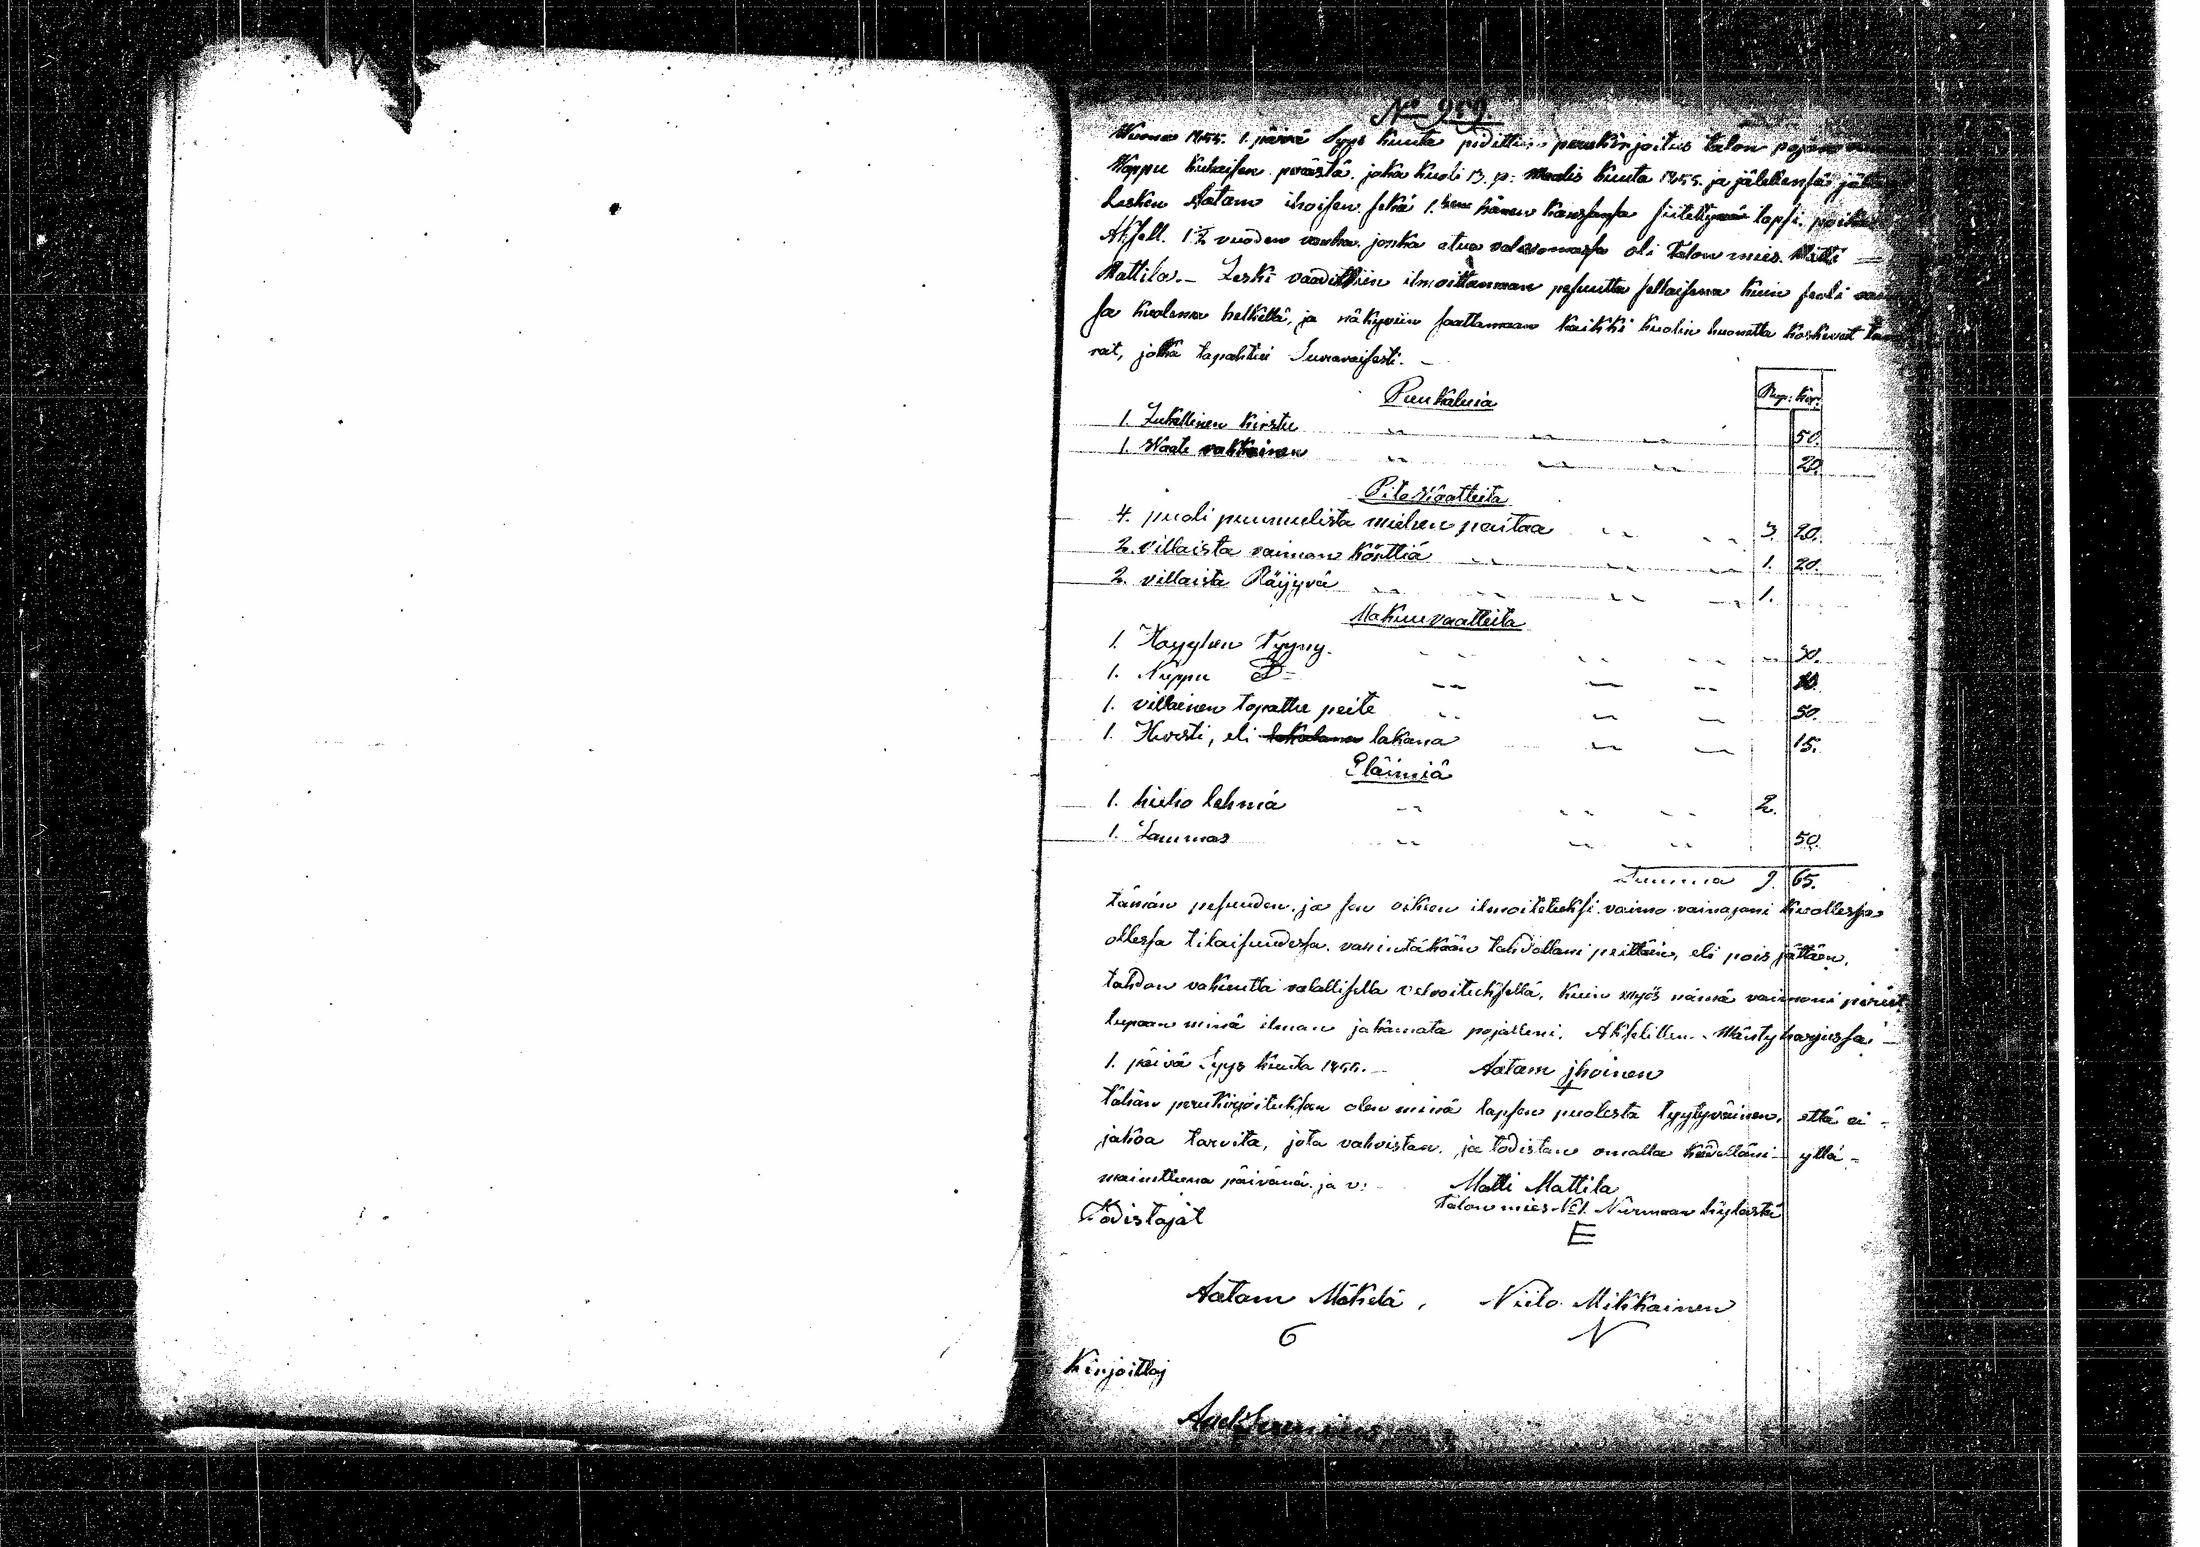 No 959.
Wuona 1855. 1. päivä Syys kuuta pidettiin perukirjoitus talon pojan
Wappu Kuhaisen perästä, joka kuoli 13. p: Maalis kuuta 1855. ja jälellensä jätti
Lesken Aatam ihoisen sekä 1. hänen kanssansa siitettynä lapsi poika
Akseli. 1 1/2 vuoden vanha jonka etua valvomassa oli talon mies. Matti
Mattila. - Leski vaadittiin ilmoittamaan pesuutta sellaisena kuin se oli
sa kuoleman hetkellä, ja näkyviin saattamaan kaikki kuolin huonetta koskevat
rat, joka tapahtui Seuraavasti. -
Rup: Kop:
Puu kaluia
1. Lukellinen Kirstu " " " 50.
1. Waate vakkainen " " " 20.
Pito Waatteita
4. puoli puumulista miehen paitaa " " 3. 20.
2. villaista vaimon Körttiä " " 1. 20.
2. villaista Röijyvä " " " 1.
Makuu vaatteita
1. Höyhen tyyny. " " " 30.
1. Nuppu D= " " " 10.
1. villainen topattu peite " " " 50.
1. Hursti, eli lakana " " 15.
Eläimiä
1. hieho lehmä " " " 2.
1. Lammas " " " 50.
Summa 9. 65.
tämän pesuuden ja sen oikein ilmoitetuksi vaimo vainajani kuollessa
ollessa tilaisuudessa. vanintäkään tahdollani peittäin, eli pois jättäen,
tahdon vakuutta valallisella velvoituksella, kuin myös nämä vaimoni perint
lupaan minä ilman jakamata pojalleni, Akselillen. Mäntyharjussa
1. päivä Syys kuuta 1855. - Aatam jhoinen
tähän perukirjoituksen olen minä lapsen puolesta tyytyväinen, että ei -
jakoa tarvita, jota vahvistan, ja todistan omalla kädelläni yllä -
mainittuna päivänä ja v: Matti Mattila
talon mies No 1. Nurmaan kylästä
Todistajat
E
Aatam Mäkelä, Niilo Miikkainen
6 N
Kirjoittaj